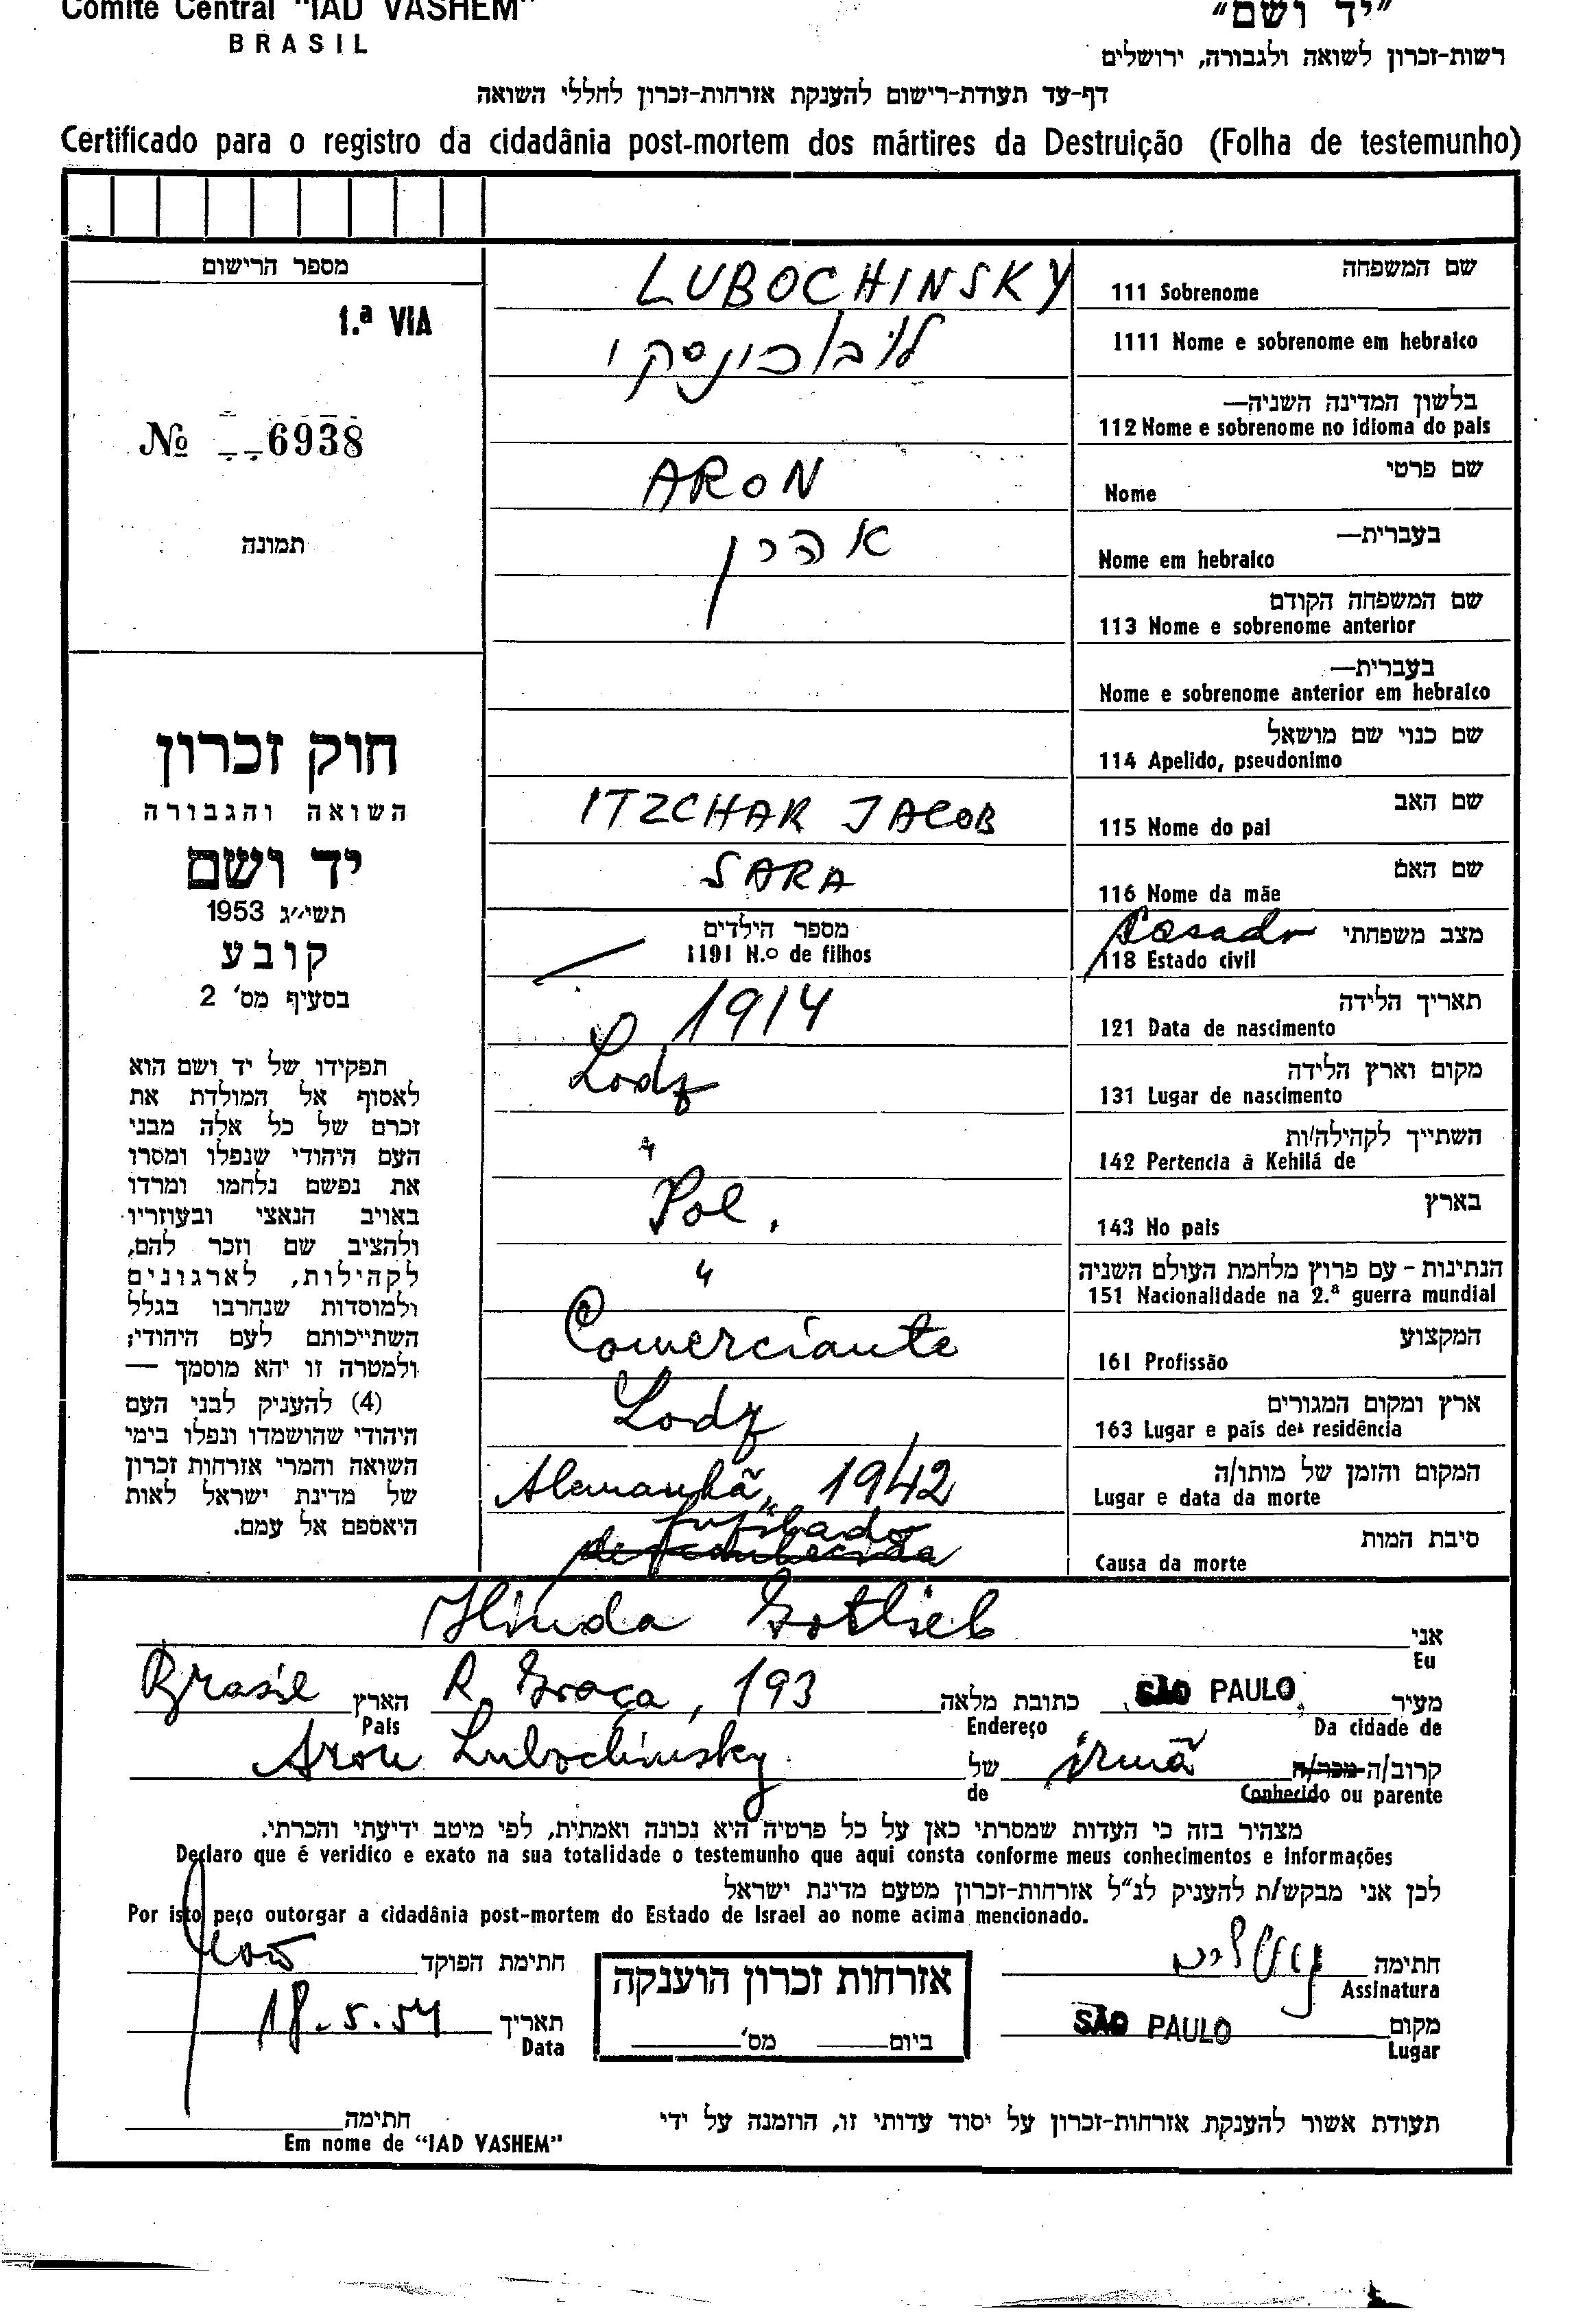 Comité Central "IAD VASHEM"
BRASIL
"יד ושם"
רשות-זכרון לשואה ולגבורה, ירושלים
דף-עד תעודת-רישום להענקת אזרחות-זכרון לחללי השואה
Certificado para o registro da cidadânia post-mortem dos mártires da Destruição (Folha de testemunho)
מספר הרישום
1.ª VIA
№ 6938
תמונה
חוק זכרון
השואה והגבורה
יד ושם
תשי״ג 1953
קובע
בסעיף מס' 2
תפקידו של יד ושם הוא
לאסוף אל המולדת את
זכרם של כל אלה מבני
העם היהודי שנפלו ומסרו
את נפשם נלחמו ומרדו
באויב הנאצי ובעוזריו
ולהציב שם וזכר להם,
לקהילות, לארגונים
ולמוסדות שנחרבו בגלל
השתייכותם לעם היהודי;
ולמטרה זו יהא מוסמך —
(4) להעניק לבני העם
היהודי שהושמדו ונפלו בימי
השואה והמרי אזרחות זכרון
של מדינת ישראל לאות
היאספם אל עמם.
שם המשפחה
111 Sobrenome LUBOCHINSKY
1111 Nome e sobrenome em hebraico לובוכינסקי
בלשון המדינה השניה—
112 Nome e sobrenome no idioma do pais
שם פרטי
Nome ARON
בעברית—
Nome em hebraico אהרן
שם המשפחה הקודם
113 Nome e sobrenome anterior
בעברית—
Nome e sobrenome anterior em hebraico
שם כנוי שם מושאל
114 Apelido, pseudonimo
שם האב
115 Nome do pai ITZCHAK JACOB
שם האם
116 Nome da mãe SARA
מצב משפחתי
118 Estado civil Casado
מספר הילדים
1191 N.º de filhos —
תאריך הלידה
121 Data de nascimento 1914
מקום וארץ הלידה
131 Lugar de nascimento Lodz
השתייך לקהילה/ות
142 Pertencia à Kehilá de "
בארץ
143 No pais Pol.
הנתינות - עם פרוץ מלחמת העולם השניה
151 Nacionalidade na 2.ª guerra mundial "
המקצוע
161 Profissão Comerciante
ארץ ומקום המגורים
163 Lugar e país de residência Lodz
המקום והזמן של מותו/ה
Lugar e data da morte Alemanhã, 1942
סיבת המות
Causa da morte fusilado
desconhecida
אני
Eu Hinda Gotlieb
מעיר SÃO PAULO כתובת מלאה R. Graça, 193 הארץ Brasil
Da cidade de Endereço Pais
קרוב/ה מכר/ה irmã של Aron Lubochinsky
Conhecido ou parente de
מצהיר בזה כי העדות שמסרתי כאן על כל פרטיה היא נכונה ואמתית, לפי מיטב ידיעתי והכרתי.
Declaro que é veridico e exato na sua totalidade o testemunho que aqui consta conforme meus conhecimentos e informações
לכן אני מבקש/ת להעניק לנ"ל אזרחות-זכרון מטעם מדינת ישראל
Por isto peço outorgar a cidadânia post-mortem do Estado de Israel ao nome acima mencionado.
חתימה
Assinatura
אזרחות זכרון הוענקה
ביום מס'
חתימת הפוקד
מקום SÃO PAULO
Lugar
תאריך 18.5.54
Data
תעודת אשור להענקת אזרחות-זכרון על יסוד עדותי זו, הוזמנה על ידי
חתימה
Em nome de "IAD VASHEM"